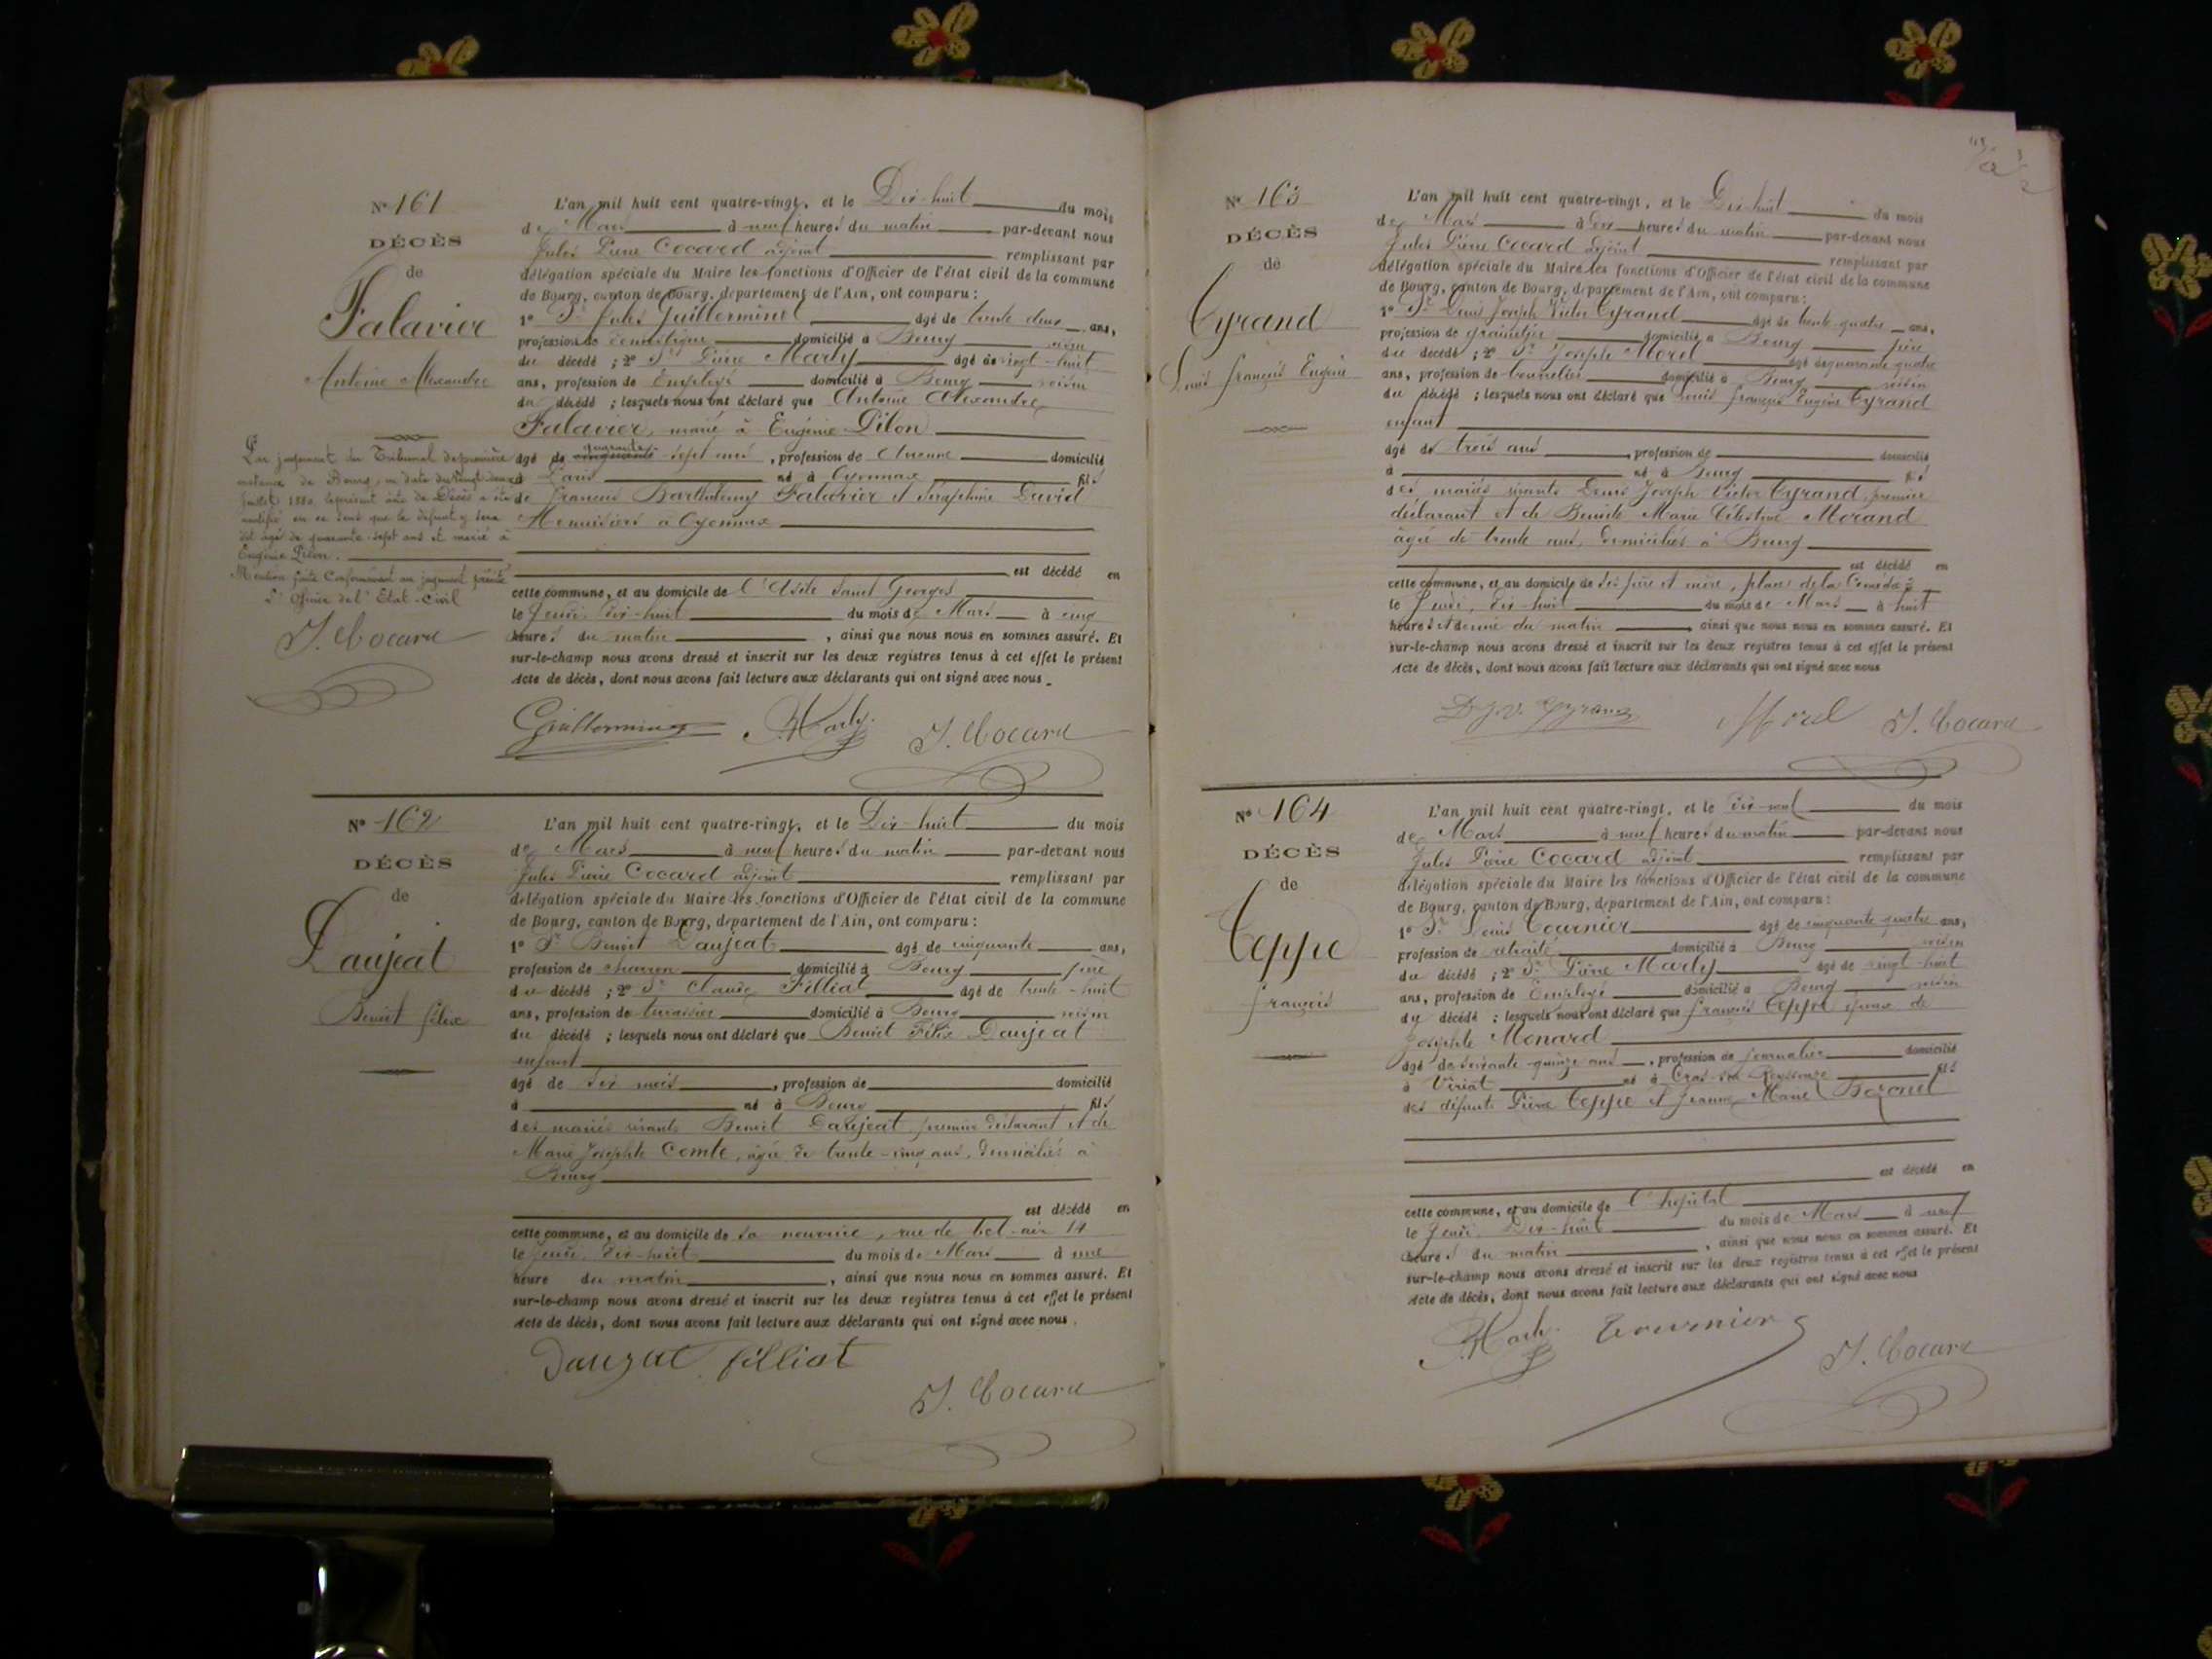 N° 161
DÉCÈS
de
Falavier
Antoine Alexandre
Par jugement du Tribunal de première
instance de Bourg, en date du vingt-deux
juillet 1880, le présent acte de Décès a été
rectifié en ce sens que le défunt y sera
dit âgé de quarante-sept ans et marié à
Eugénie Pilon.
Mention faite conformément au jugement précité
L'Officier de l'Etat-Civil
J. Cocard
L'an mil huit cent quatre-vingt, et le Dix-huit du mois
de Mars à neuf heures du matin par-devant nous
Jules Pierre Cocard adjoint remplissant par
délégation spéciale du Maire les fonctions d'Officier de l'état civil de la commune
de Bourg, canton de Bourg, département de l'Ain, ont comparu :
1° Sr Jules Guillerminet âgé de trente deux ans,
profession de domestique domicilié à Bourg voisin
du décédé ; 2° Sr Pierre Marly âgé de vingt-huit
ans, profession de Employé domicilié à Bourg voisin
du décédé ; lesquels nous ont déclaré que Antoine Alexandre
Falavier, marié à Eugénie Pilon
quarante
âgé de sept ans, profession de domicilié
à Paris né à Oyonnax fils
de François Barthélemy Falavier et Séraphine David
Menuisiers à Oyonnax
est décédé en
cette commune, et au domicile de l'Asile Saint Georges
le Jeudi dix-huit du mois de Mars à cinq
heures du matin, ainsi que nous nous en sommes assuré. Et
sur-le-champ nous avons dressé et inscrit sur les deux registres tenus à cet effet le présent
Acte de décès, dont nous avons fait lecture aux déclarants qui ont signé avec nous.
Guillerminet Marly J. Cocard
N° 162
DÉCÈS
de
Daujeat
Benoit félix
L'an mil huit cent quatre-vingt, et le Dix-huit du mois
de Mars à neuf heures du matin par-devant nous
Jules Pierre Cocard adjoint remplissant par
délégation spéciale du Maire les fonctions d'Officier de l'état civil de la commune
de Bourg, canton de Bourg, département de l'Ain, ont comparu :
1° Sr Benoit Daujeat âgé de cinquante ans,
profession de charron domicilié à Bourg père
du décédé ; 2° Sr Claude Filliat âgé de trente-huit
ans, profession de terrassier domicilié à Bourg voisin
du décédé ; lesquels nous ont déclaré que Benoit Félix Daujeat
enfant
âgé de dix mois, profession de domicilié
à né à Bourg fils
des mariés vivants Benoit Daujeat premier déclarant et de
Marie Josephte Comte, âgée de trente-cinq ans, domiciliés à
Bourg
est décédé en
cette commune, et au domicile de sa nourrice, rue de bel-air 14
le jeudi dix-huit du mois de Mars à une
heure du matin, ainsi que nous nous en sommes assuré. Et
sur-le-champ nous avons dressé et inscrit sur les deux registres tenus à cet effet le présent
Acte de décès, dont nous avons fait lecture aux déclarants qui ont signé avec nous.
filliat
J. Cocard
N° 163
DÉCÈS
de
Cyrand
Louis françois Eugène
L'an mil huit cent quatre-vingt, et le Dix-huit du mois
de Mars à Dix heures du matin par-devant nous
Jules Pierre Cocard adjoint remplissant par
délégation spéciale du Maire les fonctions d'Officier de l'état civil de la commune
de Bourg, canton de Bourg, département de l'Ain, ont comparu :
1° Sr Denis Joseph Victor Cyrand âgé de trente-quatre ans,
profession de grainetier domicilié à Bourg père
du décédé ; 2° Sr Joseph Morel âgé de quarante quatre
ans, profession de bourrelier domicilié à Bourg voisin
du décédé ; lesquels nous ont déclaré que Louis françois Eugène Cyrand
enfant
âgé de trois ans, profession de domicilié
à né à Bourg fils
des mariés vivants Denis Joseph Victor Cyrand, premier
déclarant et de Benoite Marie Célestine Morand
âgée de trente ans, domiciliés à Bourg
est décédé en
cette commune, et au domicile de ses père et mère, place de la Comédie
le Jeudi, dix-huit du mois de Mars à huit
heures et demie du matin, ainsi que nous nous en sommes assuré. Et
sur-le-champ nous avons dressé et inscrit sur les deux registres tenus à cet effet le présent
Acte de décès, dont nous avons fait lecture aux déclarants qui ont signé avec nous
D.J.V. Cyrand Morel J. Cocard
N° 164
DÉCÈS
de
Ceppe
françois
L'an mil huit cent quatre-vingt, et le dix-neuf du mois
de Mars à neuf heures du matin par-devant nous
Jules Pierre Cocard adjoint remplissant par
délégation spéciale du Maire les fonctions d'Officier de l'état civil de la commune
de Bourg, canton de Bourg, département de l'Ain, ont comparu :
1° Sr Louis Tournier âgé de cinquante quatre ans,
profession de retraité domicilié à Bourg voisin
du décédé ; 2° Sr Pierre Marly âgé de vingt huit
ans, profession de Employé domicilié à Bourg voisin
du décédé ; lesquels nous ont déclaré que françois Ceppe époux de
Josephte Monard
âgé de soixante-quinze ans, profession de journalier domicilié
à Viriat né à Cras-sur-Reyssouze fils
des défunts Pierre Ceppe et Jeanne Marie
est décédé en
cette commune, et au domicile de l'hopital
le Jeudi Dix-huit du mois de Mars à neuf
heures du matin, ainsi que nous nous en sommes assuré. Et
sur-le-champ nous avons dressé et inscrit sur les deux registres tenus à cet effet le présent
Acte de décès, dont nous avons fait lecture aux déclarants qui ont signé avec nous
Marly Tournier J. Cocard